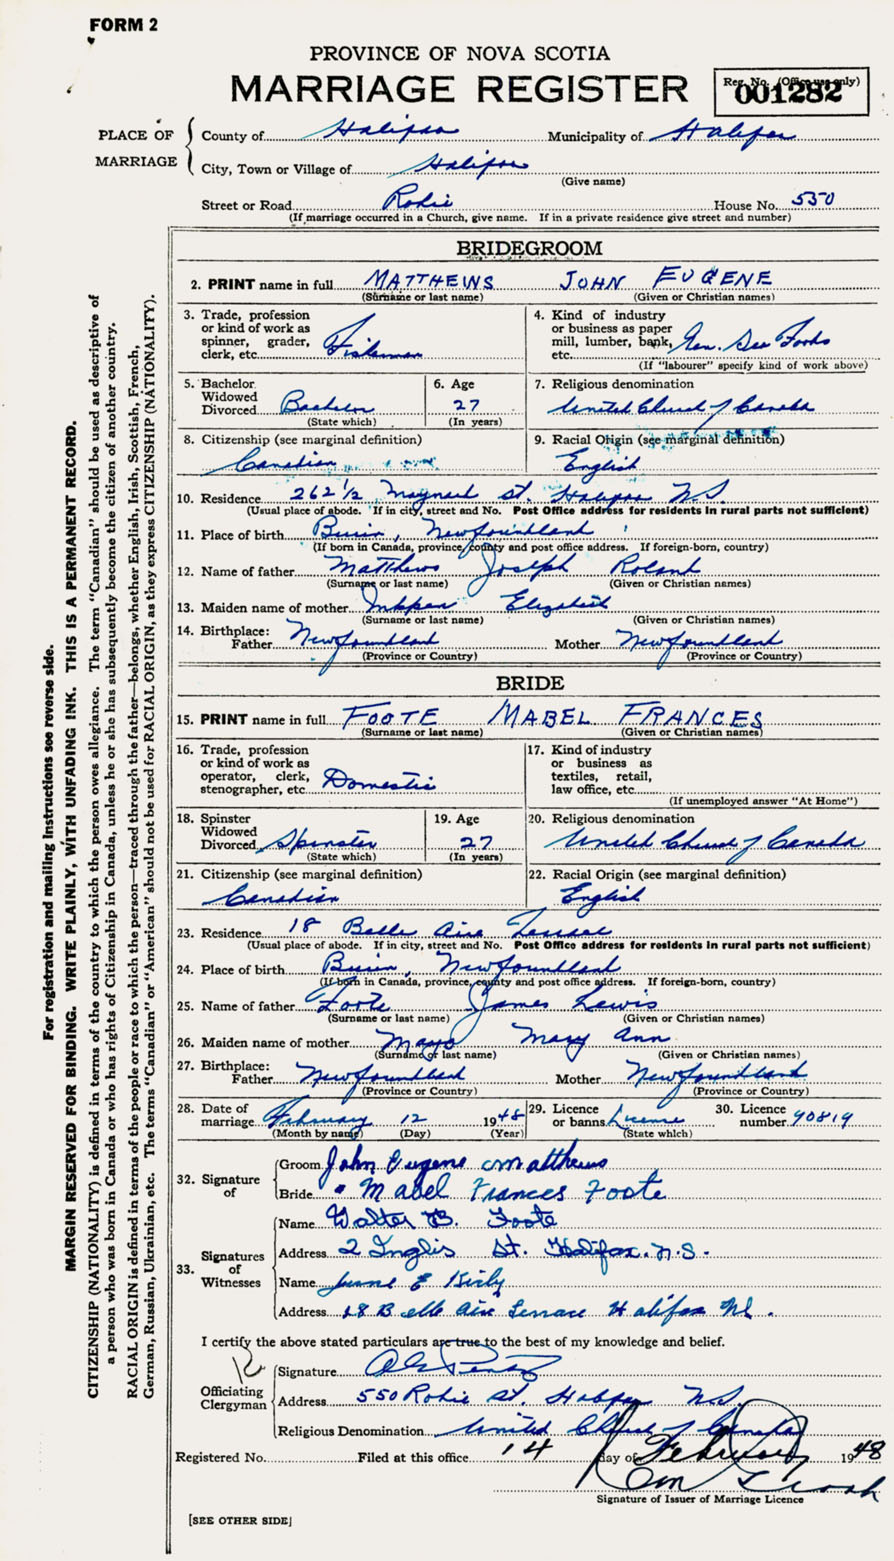 FORM 2
PROVINCE OF NOVA SCOTIA
MARRIAGE REGISTER
Reg. No. (Office use only)
001282
PLACE OF MARRIAGE
County of Halifax Municipality of Halifax
City, Town or Village of Halifax
(Give name)
Street or Road Robie House No. 550
(If marriage occurred in a Church, give name. If in a private residence give street and number)
BRIDEGROOM
2. PRINT name in full MATTHEWS JOHN EUGENE
(Surname or last name) (Given or Christian names)
3. Trade, profession or kind of work as spinner, grader, clerk, etc. Fisherman
4. Kind of industry or business as paper mill, lumber, bank, etc. Gen. Sea Foods
(If "labourer" specify kind of work above)
5. Bachelor Widowed Divorced Bachelor
(State which)
6. Age 27
(In years)
7. Religious denomination
United Church of Canada
8. Citizenship (see marginal definition)
Canadian
9. Racial Origin (see marginal definition)
English
10. Residence 262 1/2 Maynard St. Halifax N.S.
(Usual place of abode. If in city, street and No. Post Office address for residents in rural parts not sufficient)
11. Place of birth Burin, Newfoundland
(If born in Canada, province, county and post office address. If foreign-born, country)
12. Name of father Matthews Joseph Roland
(Surname or last name) (Given or Christian names)
13. Maiden name of mother Inkpen Elizabeth
(Surname or last name) (Given or Christian names)
14. Birthplace:
Father Newfoundland Mother Newfoundland
(Province or Country) (Province or Country)
BRIDE
15. PRINT name in full FOOTE MABEL FRANCES
(Surname or last name) (Given or Christian names)
16. Trade, profession or kind of work as operator, clerk, stenographer, etc. Domestic
17. Kind of industry or business as textiles, retail, law office, etc.
(If unemployed answer "At Home")
18. Spinster Widowed Divorced Spinster
(State which)
19. Age 27
(In years)
20. Religious denomination
United Church of Canada
21. Citizenship (see marginal definition)
Canadian
22. Racial Origin (see marginal definition)
English
23. Residence 18 Belle Aire Terrace
(Usual place of abode. If in city, street and No. Post Office address for residents in rural parts not sufficient)
24. Place of birth Burin, Newfoundland
(If born in Canada, province, county and post office address. If foreign-born, country)
25. Name of father Foote James Lewis
(Surname or last name) (Given or Christian names)
26. Maiden name of mother Mayo Mary Ann
(Surname or last name) (Given or Christian names)
27. Birthplace:
Father Newfoundland Mother Newfoundland
(Province or Country) (Province or Country)
28. Date of marriage February 12 1948
(Month by name) (Day) (Year)
29. Licence or banns License
(State which)
30. Licence number 90819
32. Signature of
Groom John Eugene Matthews
Bride Mabel Frances Foote
33. Signatures of Witnesses
Name Walter B. Foote
Address 2 Inglis St. Halifax. N.S.
Name June E Kirby
Address 18 Belle Aire Terrace Halifax NS.
I certify the above stated particulars are true to the best of my knowledge and belief.
Officiating Clergyman
Signature
Address 550 Robie St. Halifax N.S.
Religious Denomination United Church of Canada
Registered No. Filed at this office 14 day of February 1948
Signature of Issuer of Marriage Licence
[SEE OTHER SIDE]
For registration and mailing instructions see reverse side.
MARGIN RESERVED FOR BINDING. WRITE PLAINLY, WITH UNFADING INK. THIS IS A PERMANENT RECORD.
CITIZENSHIP (NATIONALITY) is defined in terms of the country to which the person owes allegiance. The term "Canadian" should be used as descriptive of
a person who was born in Canada or who has rights of Citizenship in Canada, unless he or she has subsequently become the citizen of another country.
RACIAL ORIGIN is defined in terms of the people or race to which the person—traced through the father—belongs, whether English, Irish, Scottish, French,
German, Russian, Ukrainian, etc. The terms "Canadian" or "American" should not be used for RACIAL ORIGIN, as they express CITIZENSHIP (NATIONALITY).